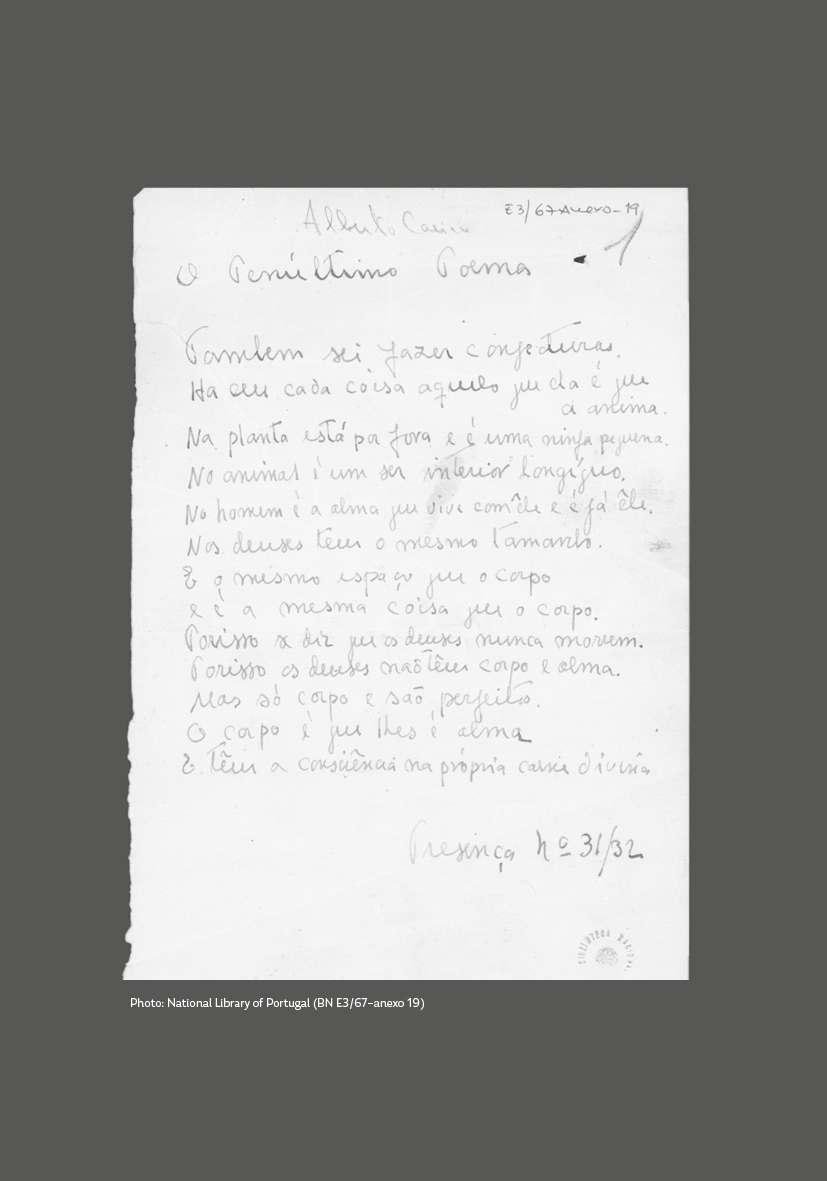 E3/67-Anexo-19
Alberto Caeiro
1
O Penúltimo Poema
Tambem sei fazer conjecturas.
Ha em cada coisa aquilo que ela é que
a anima.
Na planta está por fora e é uma ninfa pequena.
No animal é um ser interior longíquo.
No homem é a alma que vive com êle e é já êle.
Nos deuses tem o mesmo tamanho.
E o mesmo espaço que o corpo
e é a mesma coisa que o corpo.
Porisso se diz que os deuses nunca morrem.
Porisso os deuses não têm corpo e alma.
Mas só corpo e são perfeitos.
O corpo é que lhes é alma
E têm a consciência na própria carne divina
Presença Nº 31/32
BIBLIOTECA NACIONAL
Photo: National Library of Portugal (BN E3/67–anexo 19)